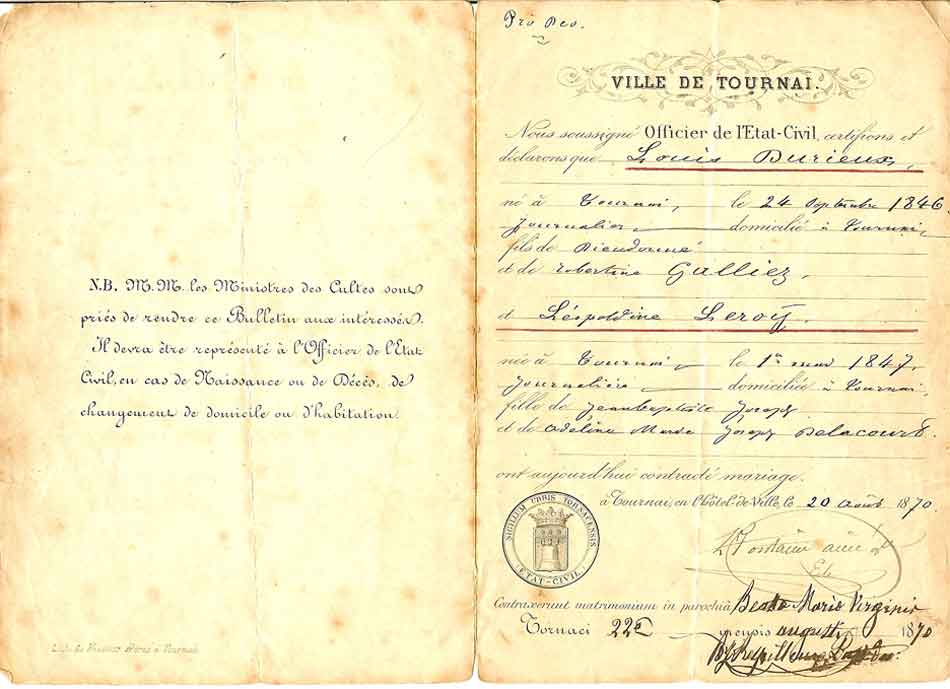 N.B. M.M. les Ministres des Cultes sont
priés de rendre ce Bulletin aux intéressés.
Il devra être représenté à l'Officier de l'Etat-
Civil, en cas de Naissance ou de Décès, de
changement de domicile ou d'habitation.
à Tournai
Pro Deo.
VILLE DE TOURNAI.
Nous soussigné Officier de l'Etat-Civil, certifions et
déclarons que Louis Durieux,
né à Tournai, le 24 Septembre 1846
Journalier domicilié à Tournai,
fils de Dieudonné
et de Robertine Galliez,
et Léopoldine Leroy.
née à Tournai, le 1er mai 1847,
Journalière domiciliée à Tournai
fille de Jeanbaptiste Joseph
et de Adeline Marie Joseph Delacourt.
ont aujourd'hui contracté mariage.
à Tournai, en l'Hôtel-de-Ville, le 20 août 1870.
SIGILLUM URBIS TORNACENSIS
ETAT-CIVIL
Contraxerunt matrimonium in parochiâ Beatae Mariae Virginis
Tornaci 22â mensis augusti 1870